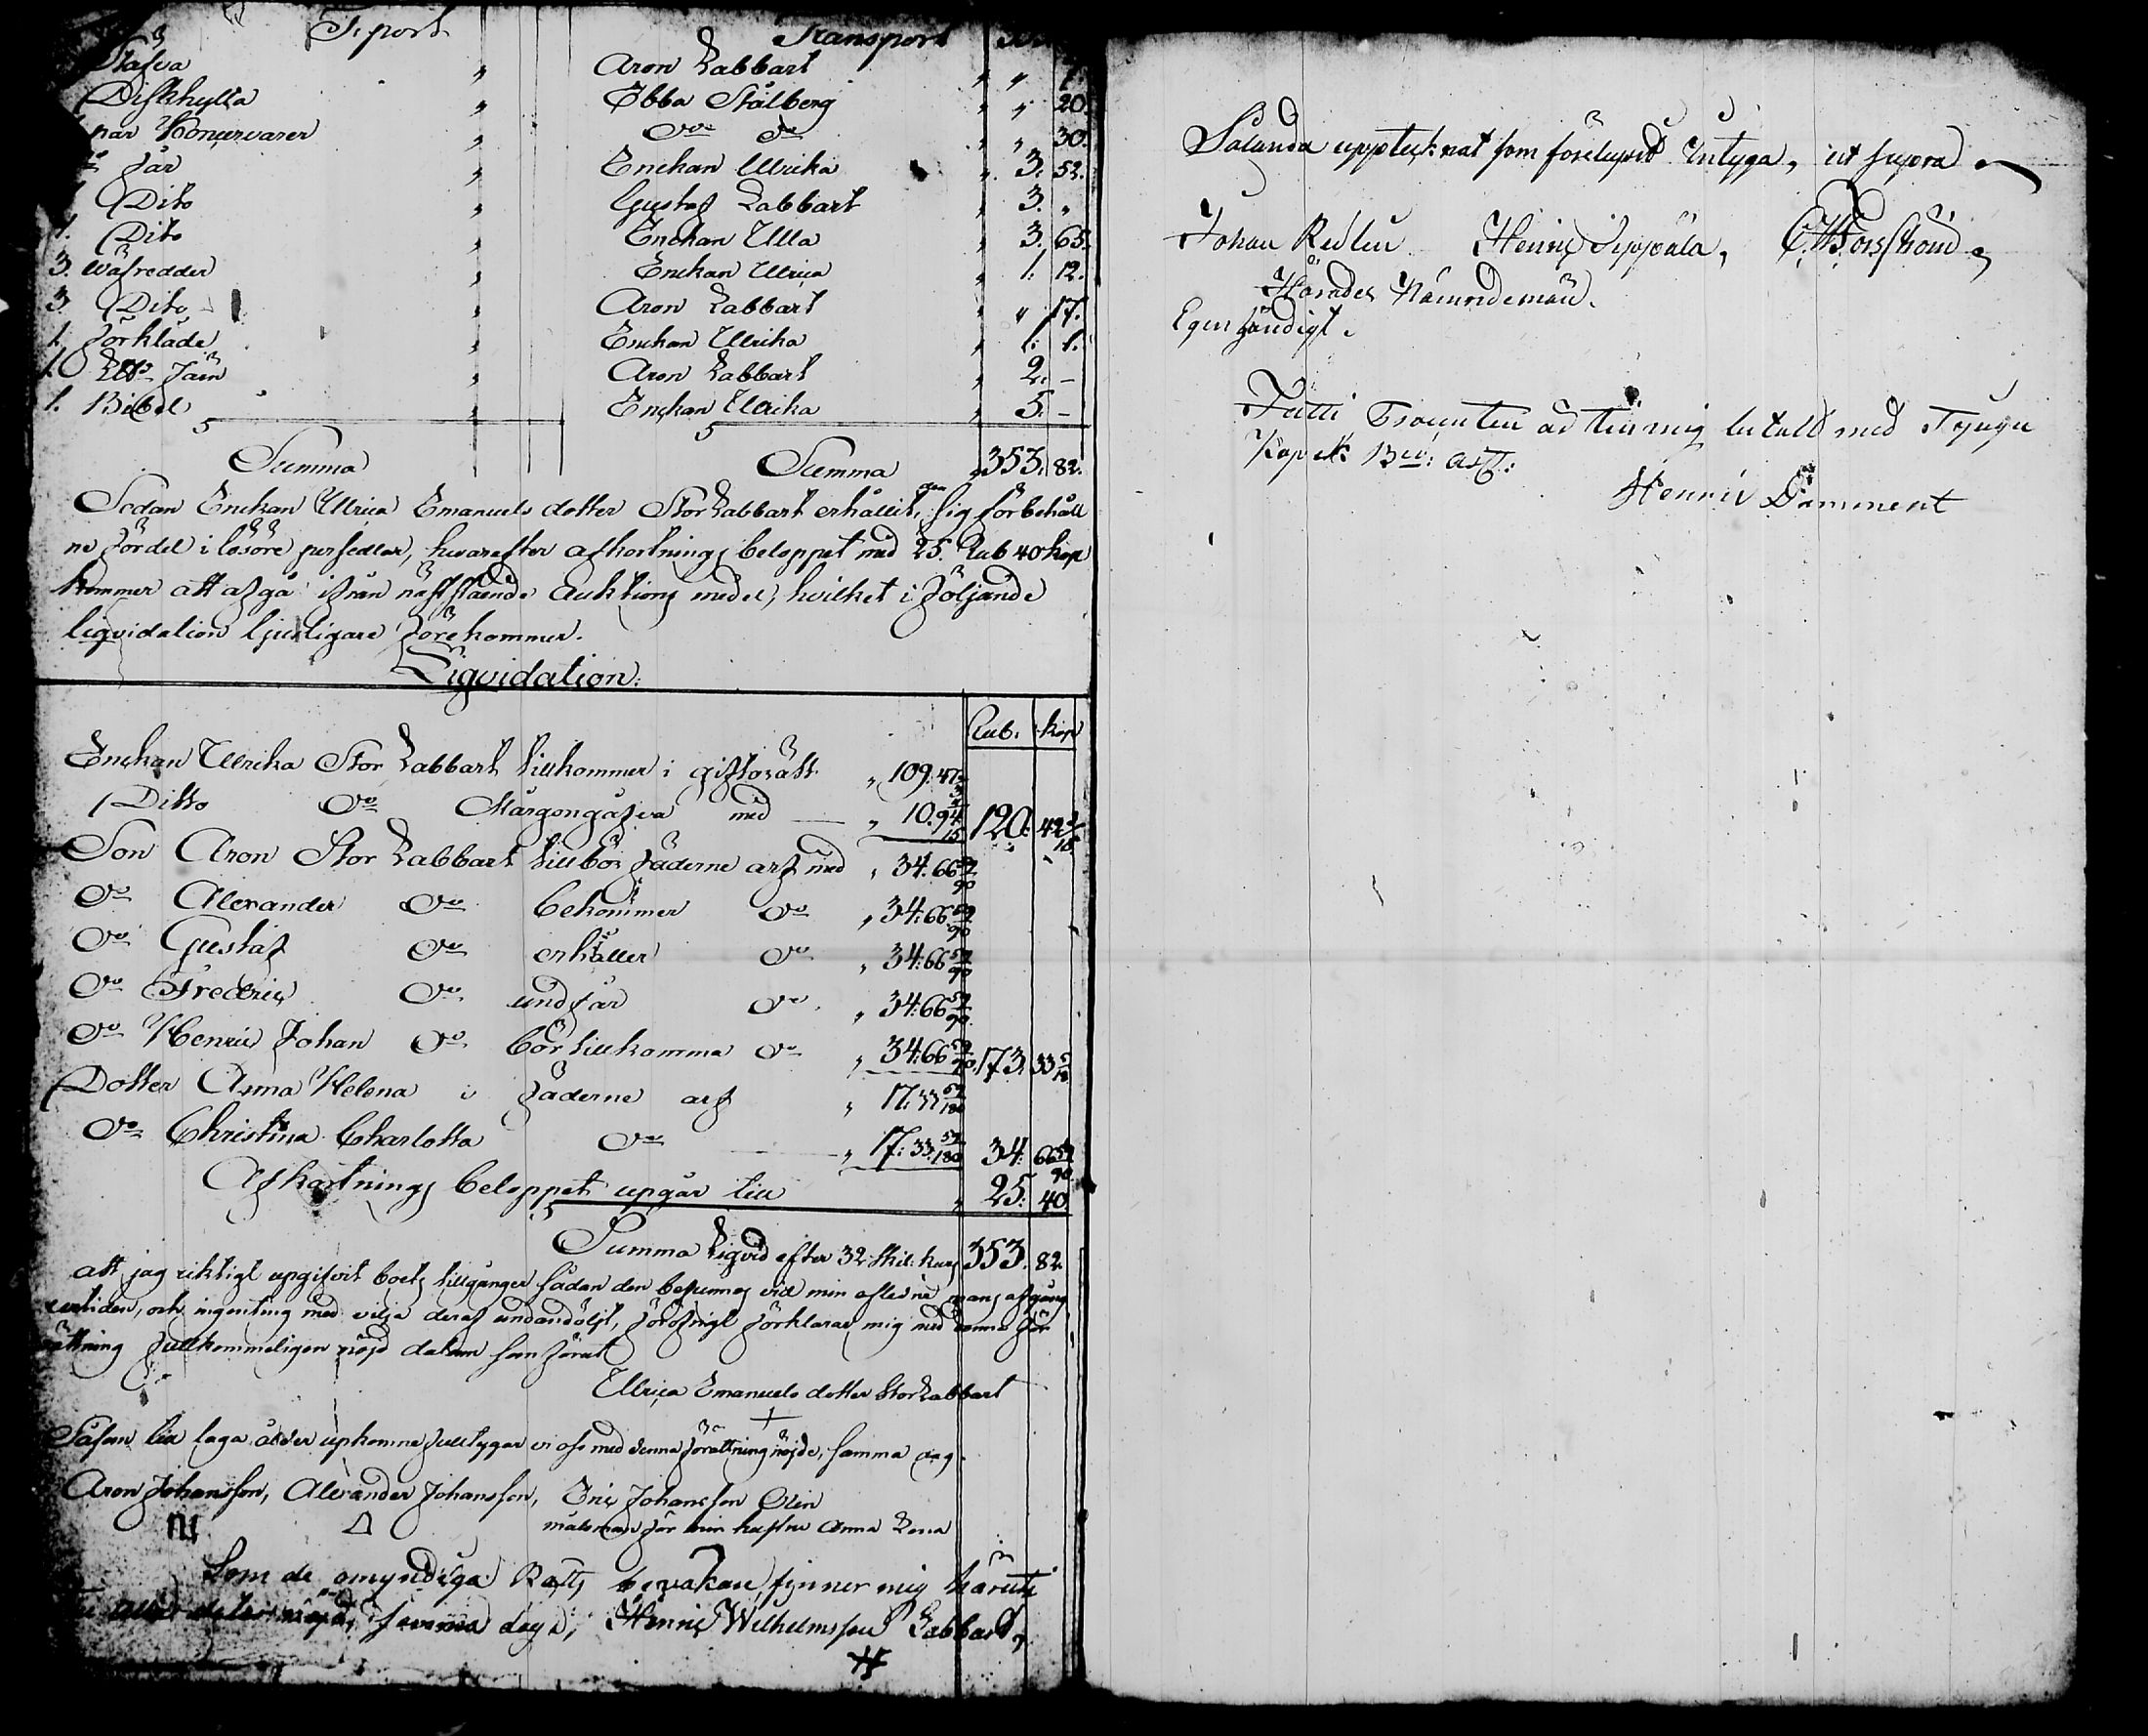 Transport Transport
Stafva " Aron Labbart " "
Diskhylla " Ebba Stålberg " " 20.
par " Do do " " 30.
får " Enckan Ullrika " 3. 52.
Dito " Gustaf Labbart " 3. "
1. Dito " Enckan Ulla " 3. 65.
3. Wäfredder " Enckan Ullrica " 1. 12.
3 Dito " Aron Labbart " " 17.
1. Förkläde " Enckan Ullrika " 1. 1.
1. " Aron Labbart " 2. –
1. Bibel " Enckan Ullrika " 5. –
Summa Summa " 353. 82.
Sedan Enckan Ullrica Emanuels dotter Stor Labbart erhållit, den sig förbehåll
ne fördel i lösöre persedlar, hvarefter afkortnings beloppet med 25. Rub 40 kop
kommer att afgå ifrån näststående Auktions medel, hvilket i följande
liqvidation tydligare förekommer.
Liqvidation.
Rub. kop
Enckan Ullrika Stor Labbart tillkommer i giftorätt " 109. 47
Ditto Do Morgongåfva med " 10. 94 120. 42
Son Aron Stor Labbart tillbör fäderne arf med " 34. 66 59/90
Do Alexander Do bekommer Do " 34: 66 59/90
Do Gustaf Do erhåller Do " 34: 66 59/90
Do Fredric Do undfår Do " 34: 66 59/90
Do Henric Johan Do bör tillkomma Do " 34: 66 59/90 173. 33
Dotter Anna Helena i fäderne arf " 17. 33 59/180
Do Christina Charlotta Do " 17: 33. 59/180 34: 66 59/90
Afkortnings beloppet upgår till " 25. 40
Summa Liqvid efter 32 Skil: kurs 353. 82.
att jag riktigt upgifvit boets tillgånger sådan den befunnes vid min afledne mans afgång
, och ingenting med vilja deraf undandöljt, förklarar mig med denna för
rättning fullkommeligen nöjd datum som förut
Ullrica Emanuels dotter Stor Labbart
+
Såsom till laga ålder upkomne fulltygar vi oss med denna förrättning nöjde, samma dag.
Aron Johansson, Alexander Johansson, Eric Johansson Olin
målsman för min hustru Anna Lena
Som de omyndiga Rätts bevakare finner mig häruti
till alla delar nöjd, samma dag, Henric Wilhelmsson Labbart,
Sålunda upptecknat som förelupit Intyga, ut supra
Johan Redlun Henric Seppälä, C. W. Forsström
Härads Nämndemän.
Egenhändigt.
Fatti Procenten är till mig betalt med Tjugu
Kopek Bco: Ass:
Henric Damment